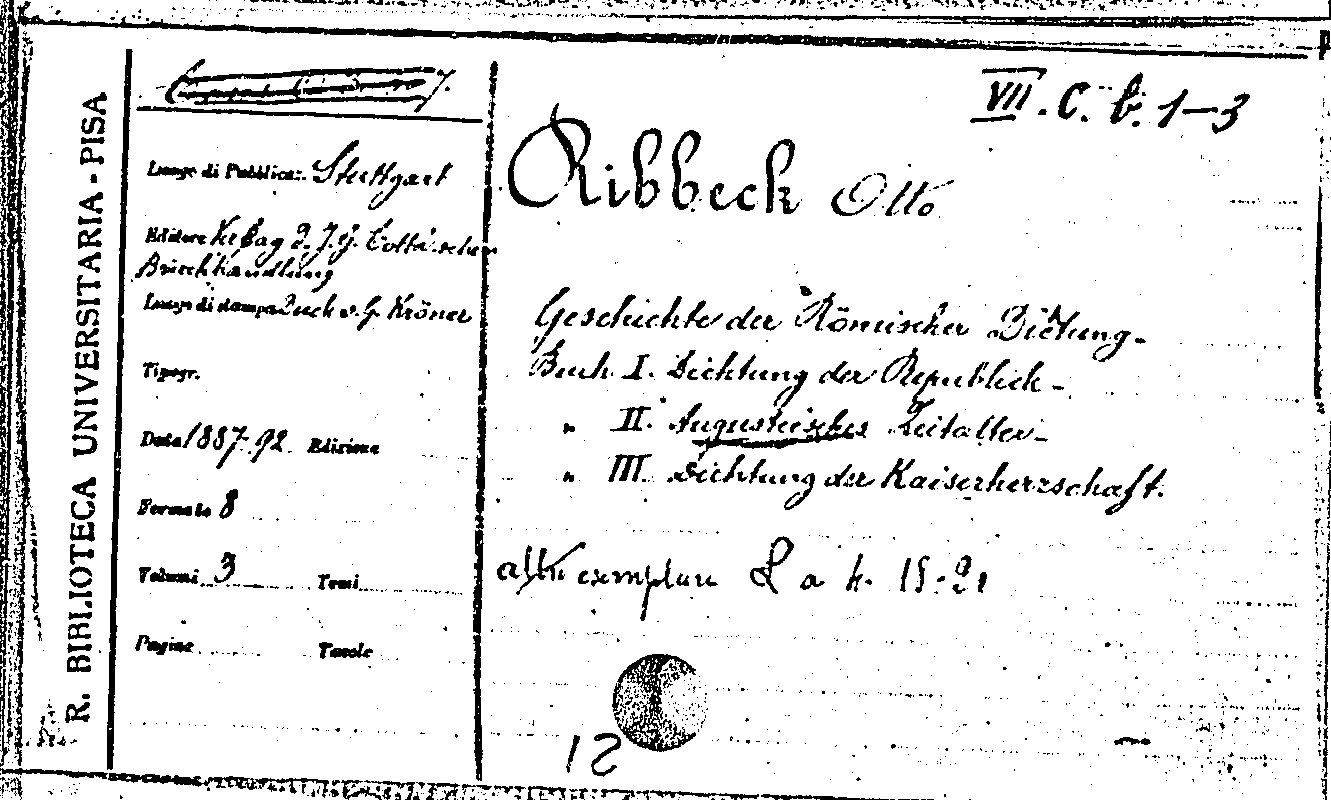 R. BIBLIOTECA UNIVERSITARIA - PISA
VII. C. b. 1-3
Luogo di Pubblicaz. Stuttgart
Editore Verlag d. J. G. Cotta'schen
Buchhandlung
Luogo di stampa Druck v. G. Kröner
Tipogr.
Data 1887-92 Edizione
Formato 8
Volumi 3 Tomi
Pagine Tavole
Ribbeck Otto
Geschichte der Römischer Dictung-
Buch I. Dichtung der Republick-
" II. Augusteisches Zeitalter-
" III. Dichtung der Kaiserherrschaft.
altro esemplare L a h. 19-21